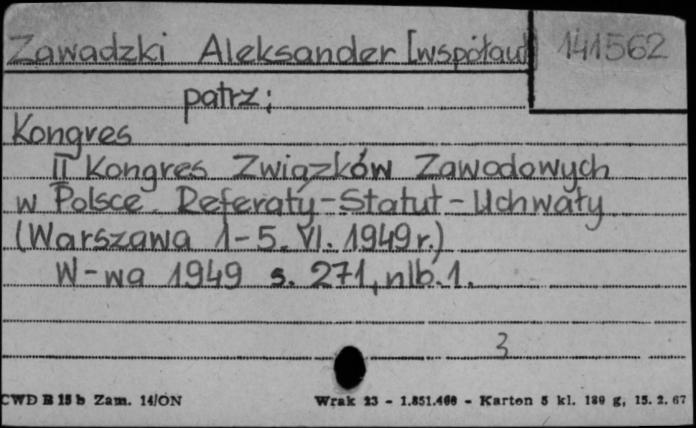 Zawadzki Aleksander [współaut
141562
patrz:
Kongres
II Kongres Związków Zawodowych
w Polsce. Referaty-Statut-Uchwały
(Warszawa 1-5. VI. 1949r.)
W-wa 1949 s. 271, nlb. 1.
3
CWD B 15 b Zam. 14/ON
Wrak 23 - 1.851.400 - Karton 5 kl. 180 g, 15. 2. 67